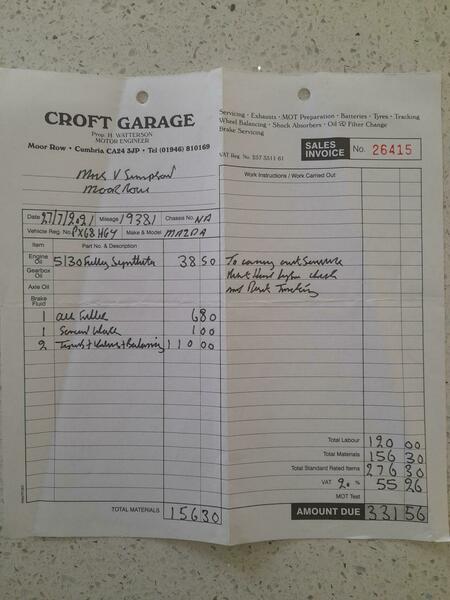 CROFT GARAGE
Prop. H. WATTERSON
MOTOR ENGINEER
Moor Row • Cumbria CA24 3JP • Tel (01946) 810169
Servicing • Exhausts • MOT Preparation • Batteries • Tyres • Tracking
Wheel Balancing • Shock Absorbers • Oil & Filter Change
Brake Servicing
VAT Reg. No. 257 5511 61
SALES INVOICE No. 26415
V Simpson
Moor Row
Date 27/7/2021 Mileage 19381 Chassis No. NA
Vehicle Reg. No. PX68 HGY Make & Model MAZDA
Item Part No. & Description
Engine Oil 5/30 Fully Synthetic 38 50
Gearbox Oil
Axle Oil
Brake Fluid
1 6 80
1 1 00
2 + Balancing 110 00
TOTAL MATERIALS 156 30
Work Instructions / Work Carried Out
To carry out Service
check
and Tracking
Total Labour 120 00
Total Materials 156 30
Total Standard Rated Items 276 30
VAT 20 % 55 26
MOT Test
AMOUNT DUE 331 56